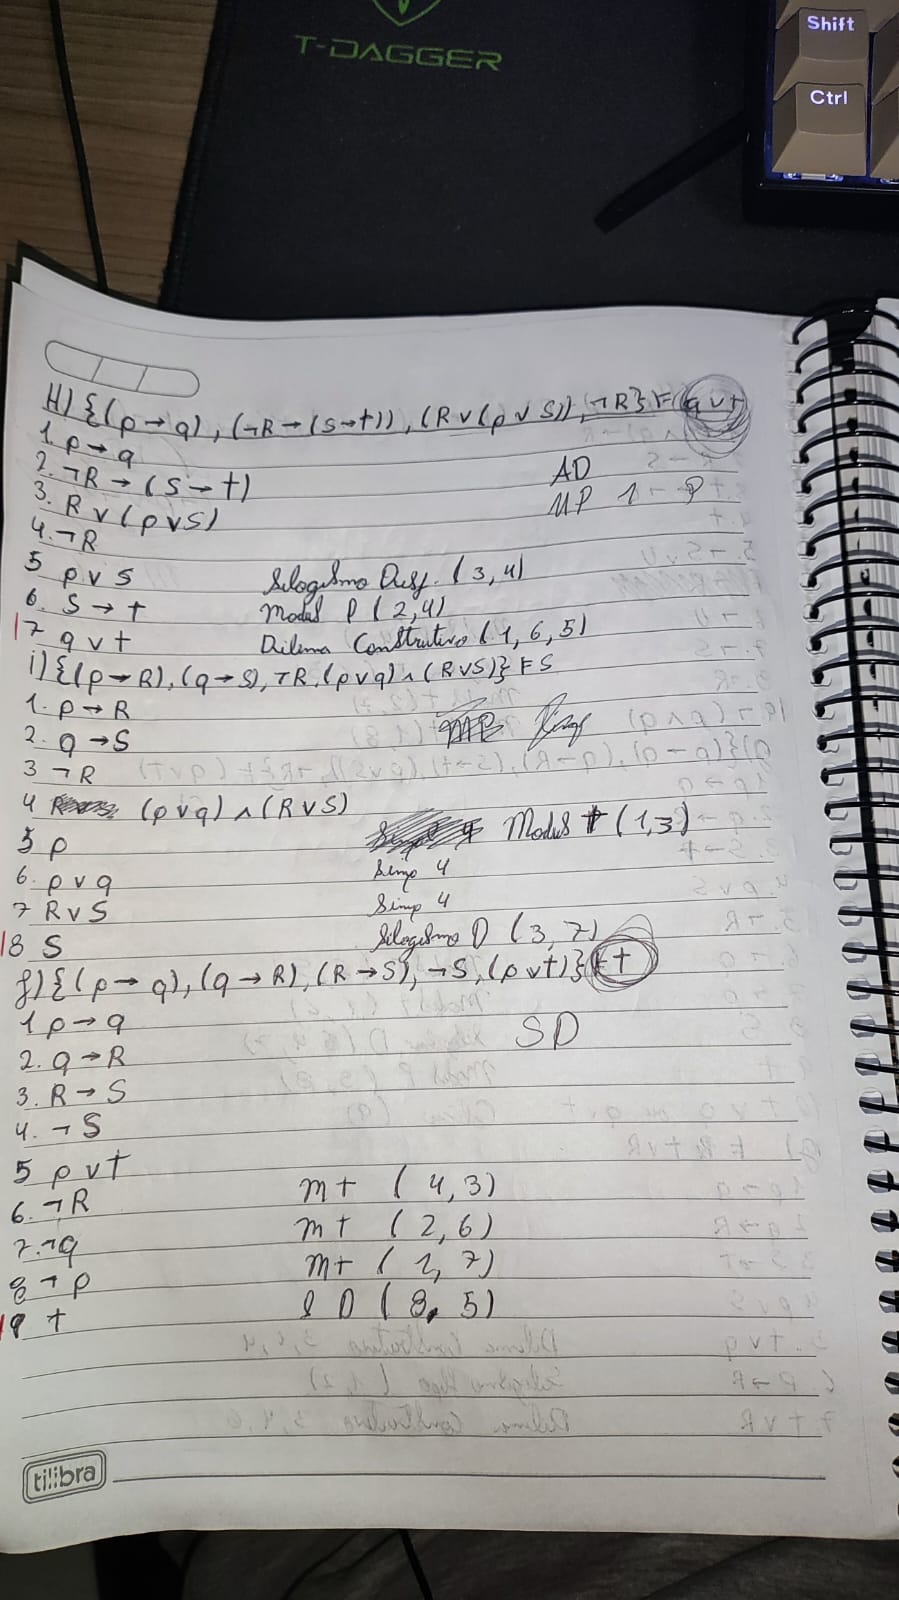 T-DAGGER
Shift
Ctrl
H) {(p → q), (¬R → (S → t)), (R ∨ (p ∨ S)), ¬R} ⊢ (q ∨ t)
1. p → q
2. ¬R → (S → t) AD
3. R ∨ (p ∨ S) MP 1 - P
4. ¬R
5 p ∨ S Silogismo Disj. (3,4)
6. S → t Modus P (2,4)
7 q ∨ t Dilema Construtivo (1,6,5)
i) {(p → R), (q → S), ¬R, (p ∨ q) ∧ (R ∨ S)} ⊢ S
1. p → R
2. q → S
3 ¬R
4 (p ∨ q) ∧ (R ∨ S)
5 p Modus t (1,3)
6. p ∨ q Simp 4
7 R ∨ S Simp 4
8 S Silogismo D (3,7)
j) {(p → q), (q → R), (R → S), ¬S, (p ∨ t)} ⊢ t
1 p → q
2. q → R SD
3. R → S
4. ¬S
5 p ∨ t
6. ¬R mt (4,3)
7. ¬q mt (2,6)
8 ¬p mt (1,7)
9 t S D (8, 5)
tilibra